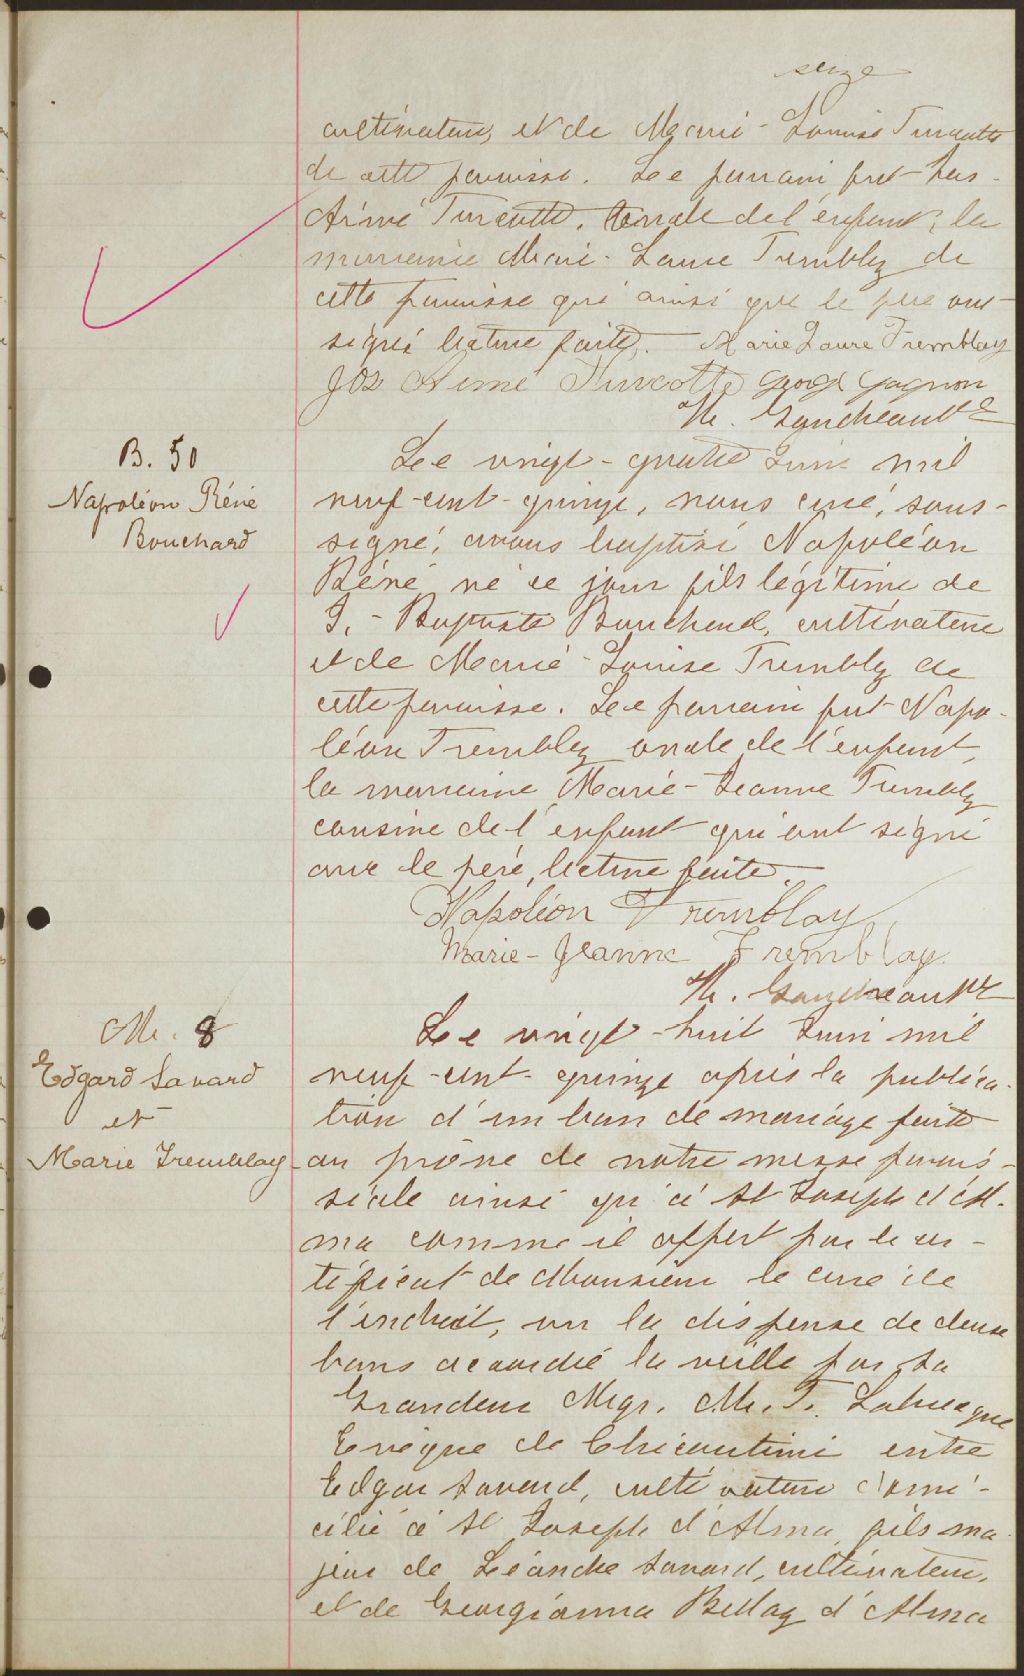 seize
cultivateur, et de Marie-Louise Turcotte
de cette paroisse. Le parrain fut Jos.
Aimé Turcotte, oncle de l'enfant, la
marraine Marie-Laure Tremblay de
cette paroisse qui ainsi que le père ont
signé lecture faite. Marie Laure Tremblay
Jos Aimé Turcotte Georges Gagnon
B. 50
Napoléon Réné
Bouchard
Le vingt-quatre Juin mil
neuf-cent-quinze, nous curé, sous-
signé, avons baptisé Napoléon
Réné né ce jour fils légitime de
J.-Baptiste Bouchard, cultivateur
et de Marie-Louise Tremblay de
cette paroisse. Le parrain fut Napo-
léon Tremblay oncle de l'enfant,
la marraine Marie-Jeanne Tremblay
cousine de l'enfant qui ont signé
avec le père, lecture faite.
Napoléon Tremblay
Marie-Jeanne Tremblay
M. 8
Edgard Savard
et
Marie Tremblay
Le vingt-huit Juin mil
neuf-cent-quinze après la publica-
tion d'un ban de mariage faite
au prône de notre messe parois-
siale ainsi qu'à St Joseph d'Al-
ma comme il appert par le cer-
tificat de Monsieur le curé de
l'endroit, vu la dispense de deux
bans accordée la veille par Sa
Grandeur Mgr. M. T. Labrecque
Evêque de Chicoutimi entre
Edgar Savard, cultivateur domi-
cilié à St Joseph d'Alma fils ma-
jeur de Léandre Savard, cultivateur,
et de Georgianna Bellay d'Alma